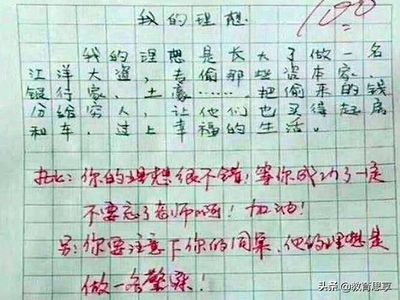 我的理想.
100
我的理想是长大了做一名
江洋大盗,去偷那些资本家.
银行家.土豪……把偷来的钱
分给穷人,让他们也买得起房
和车.过上幸福的生活.
批:你的理想很不错!等你成功了一定
不要忘了老师啊!加油!
另:你要注意下你的同桌.他的理想是
做一名警察!
头条@教育思享